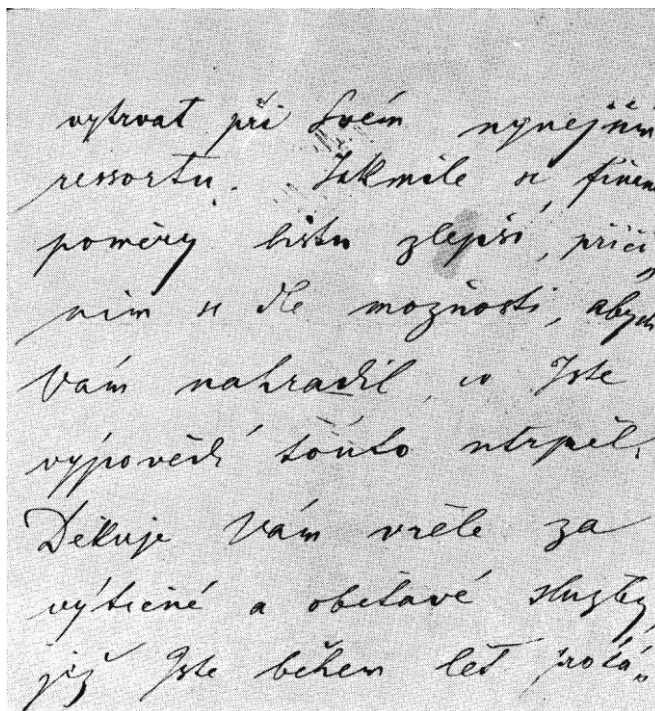 vytrvat při Svém nynejším
ressortu. Jakmile se finan
poměry listu zlepší, přiči
ním se dle možnosti, abych
Vám nahradil, co Jste
výpovědí touto utrpěl.
Děkuje Vám vřele za
výtečné a obětavé služby,
jež Jste během let